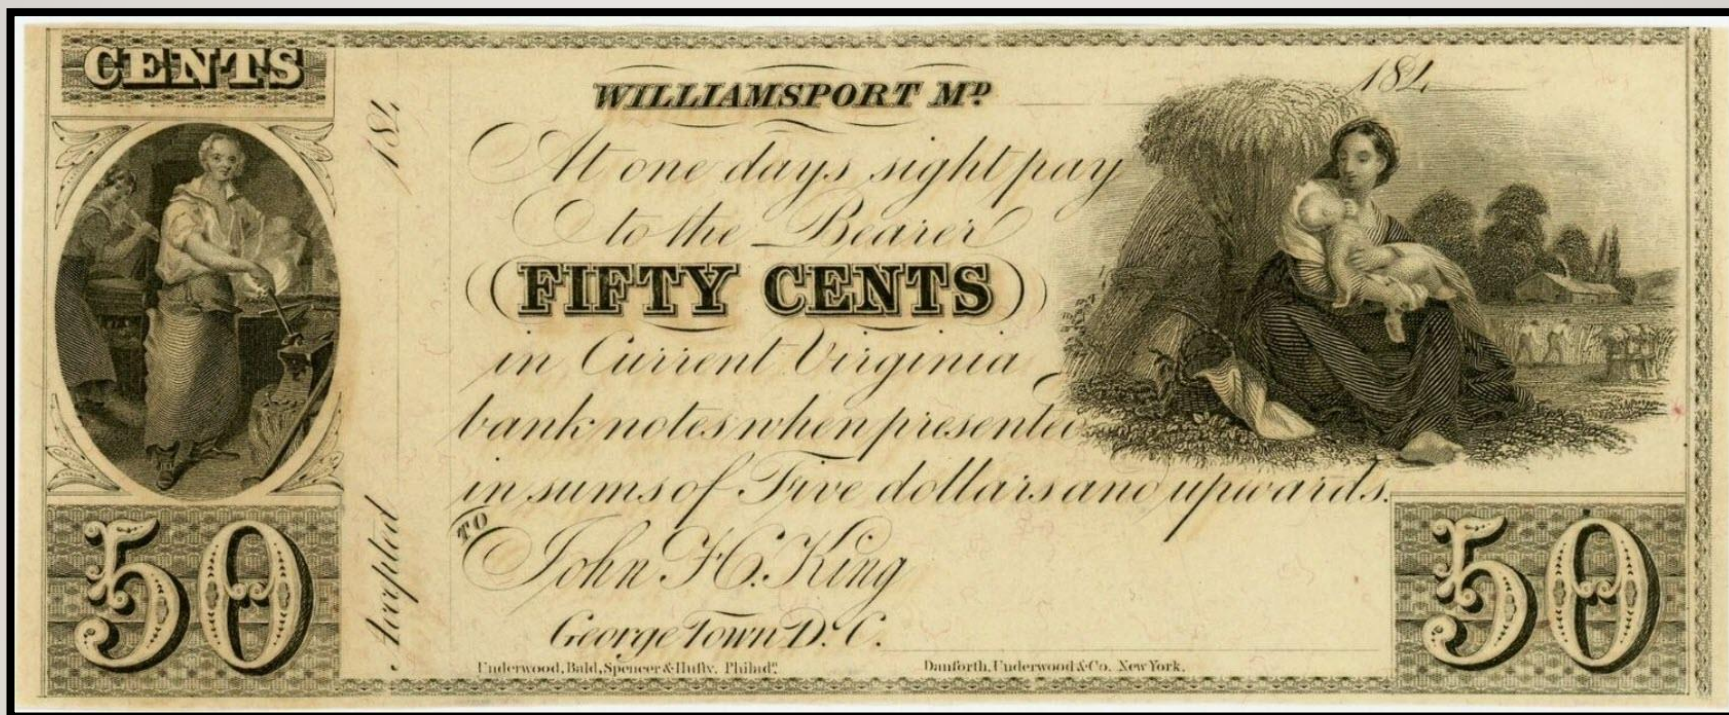 CENTS
184
Accepted
50
WILLIAMSPORT MD
184
At one days sight pay
to the Bearer
FIFTY CENTS
in Current Virginia
bank notes when presented
in sums of Five dollars and upwards.
TO
John H. King
George Town D. C.
Underwood, Bald, Spencer & Hufty, Philada.
Danforth, Underwood & Co. New York.
50